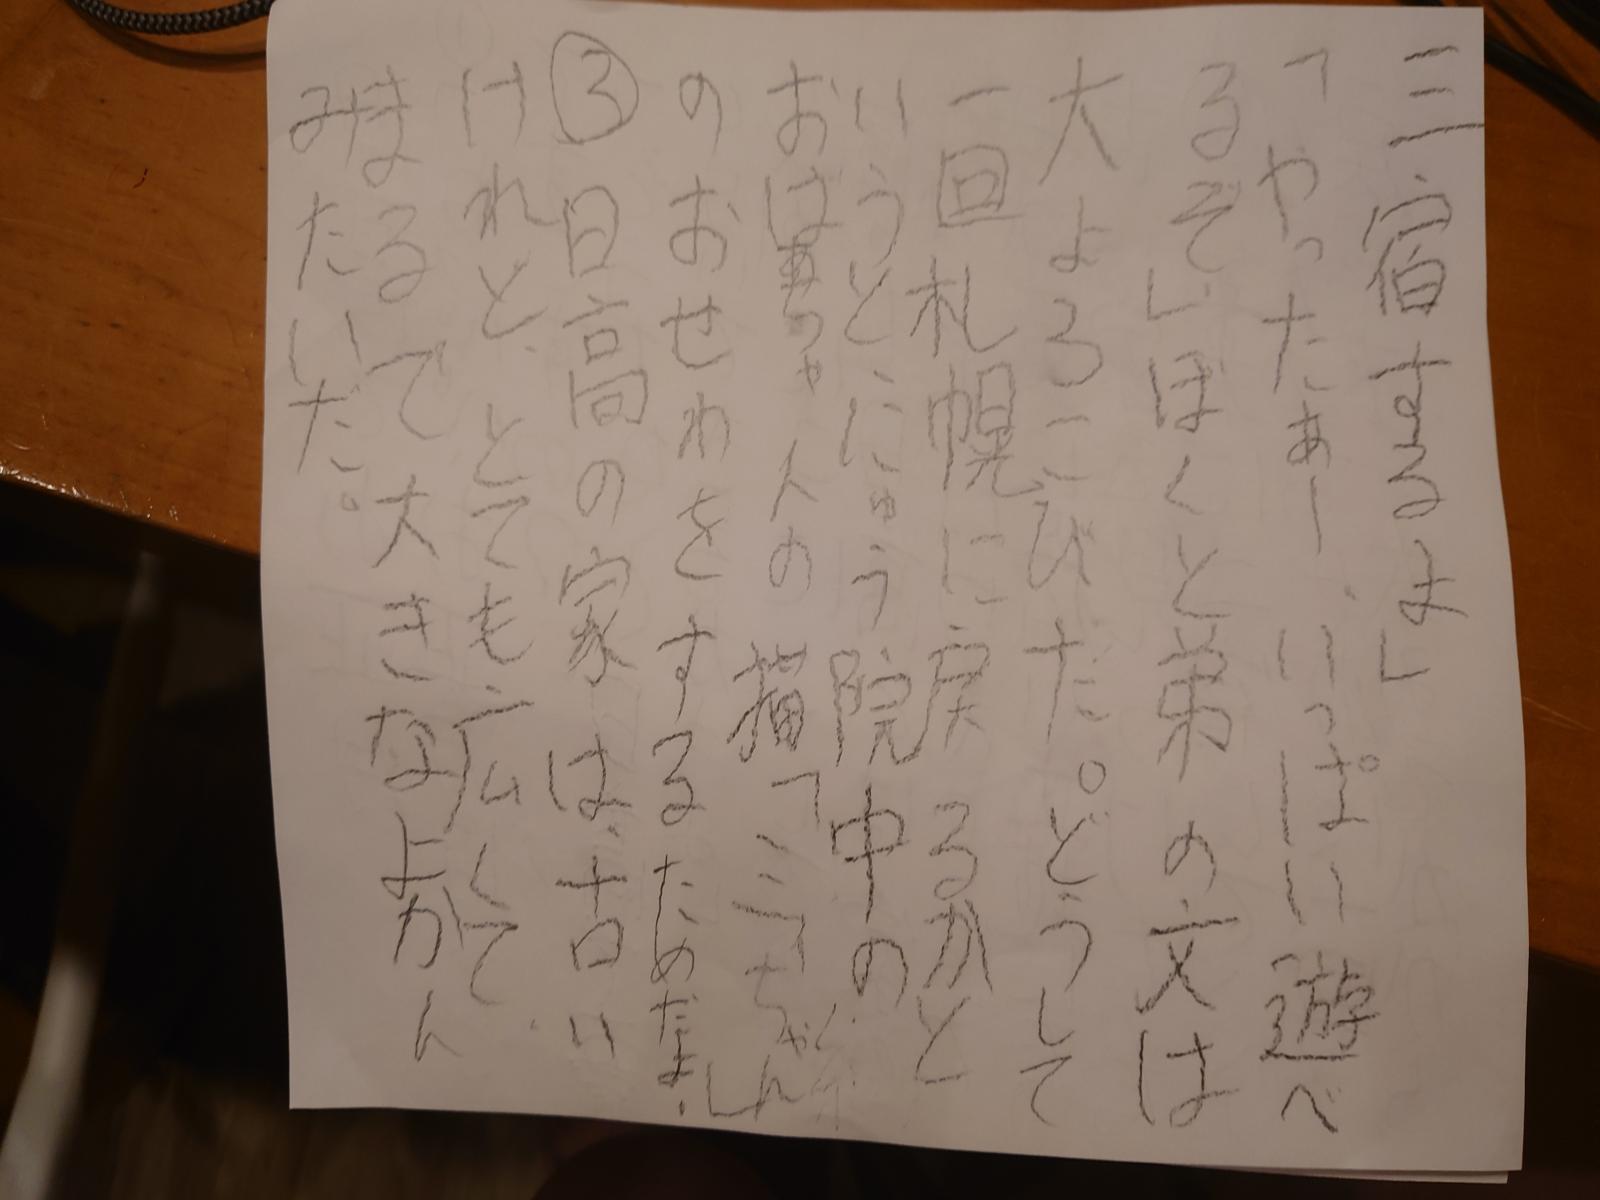 三宿するよ」
「やったぁー、いっぱい遊べ
るぞ」ぼくと弟の文は
大よろこびだ。どうして
一回札幌に戻るかと
いうとにゅう院中の
おばあちゃんの猫「ミーちゃん」
のおせわをするためだよ。
③日高の家は、古い
けれど、とても広くて
まるで大きなようかん
みたいだ。